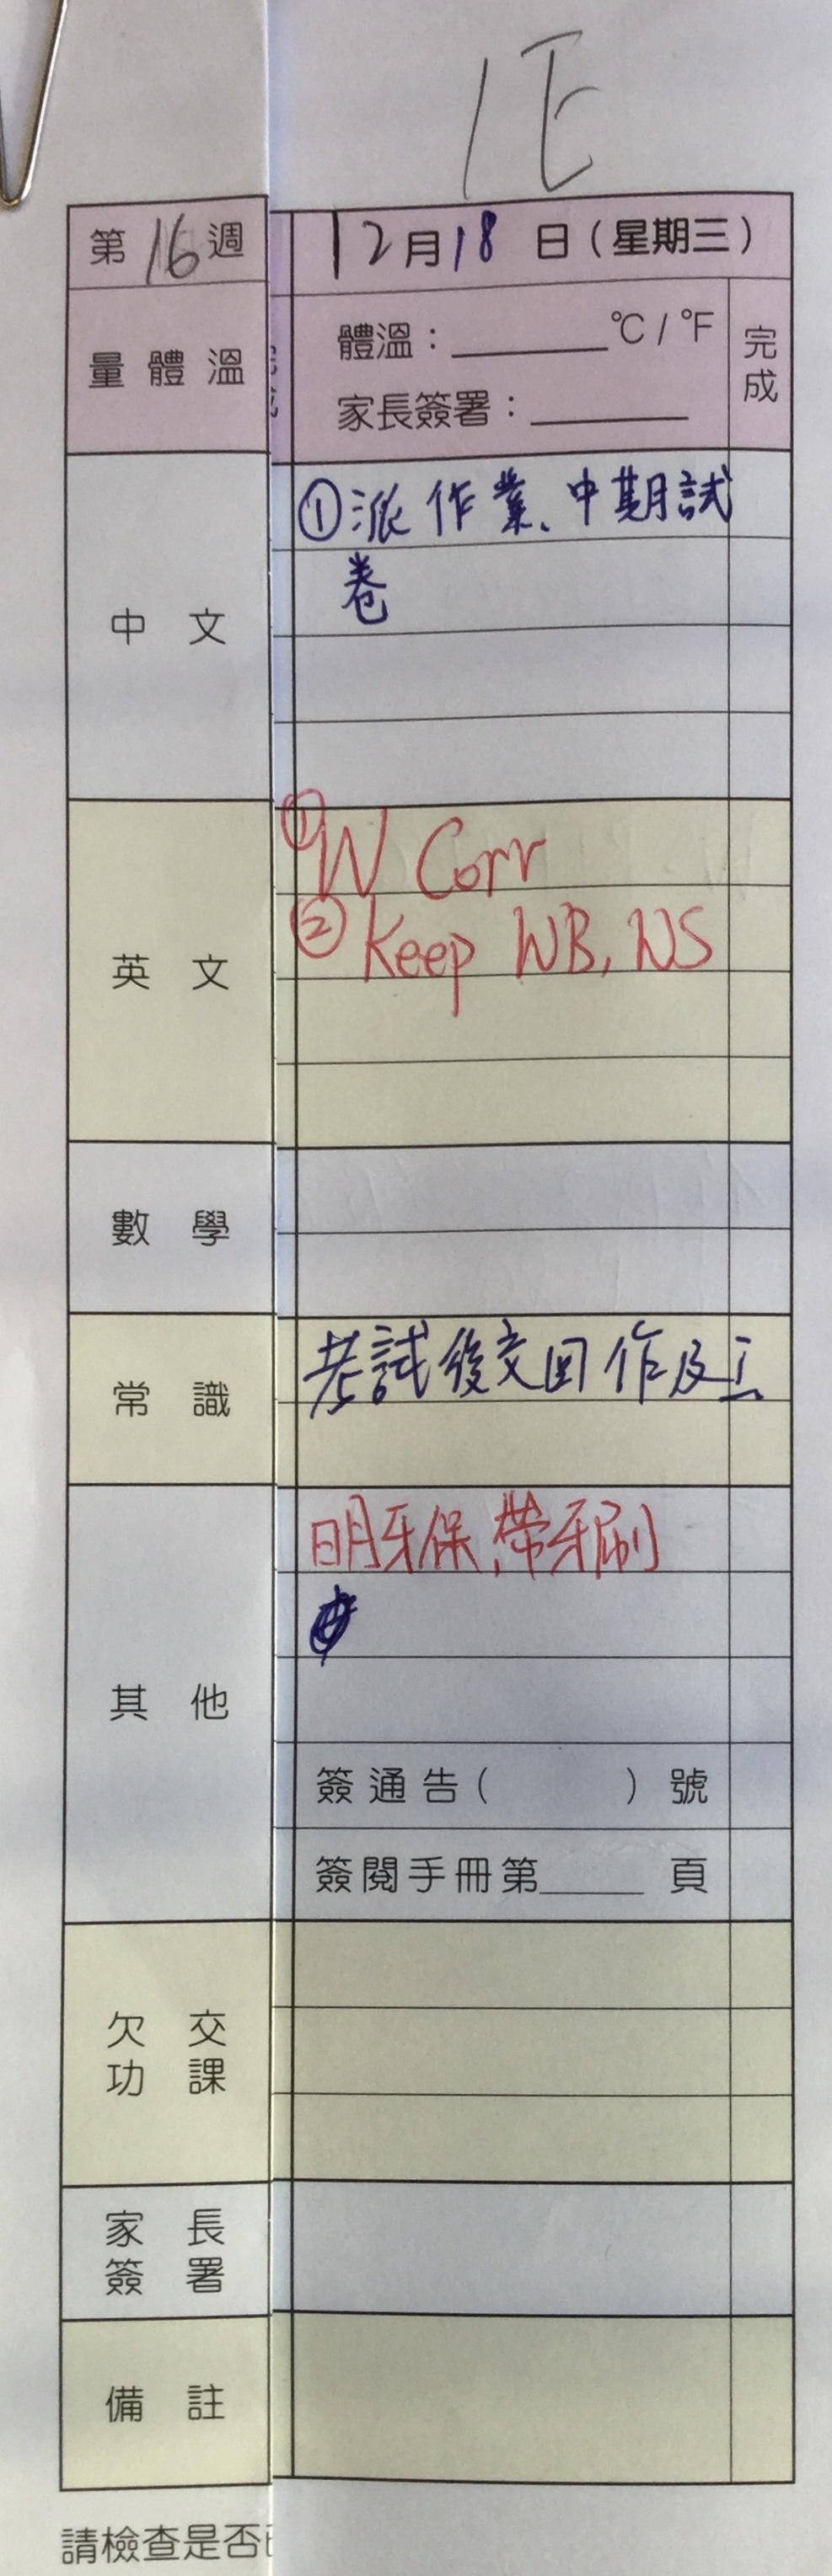 1E
第16週
12月18日(星期三)
量體溫
體溫：______°C / °F
家長簽署：______
完成
中文
①派作業、中期試
卷
英文
①W Corr
②Keep WB, WS
數學
常識
考試後交回作及工
其他
明牙保,帶牙刷
簽通告( )號
簽閱手冊第____頁
欠交
功課
家長
簽署
備註
請檢查是否